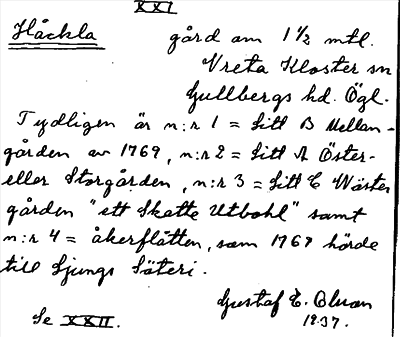 XXI
Håckla gård om 1 1/2 mtl.
Vreta Kloster sn
Gullbergs hd. Ögl.
Tydligen är n:r 1 = Litt B Mellan-
gården av 1769, n:r 2 = Litt A Öster-
eller Storgården, n:r 3 = Litt C Wäster
gården "ett Skatte Utbohl" samt
n:r 4 = åkerflätten, som 1767 hörde
till Ljungs Säteri.
Gustaf E.
1937.
Se XXII.